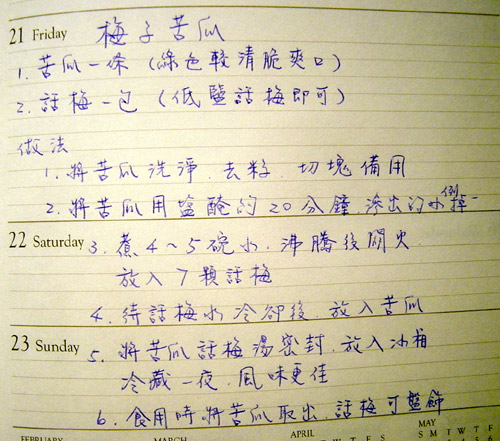 21 Friday 梅子苦瓜
1. 苦瓜一條（綠色較清脆爽口）
2. 話梅一包（低鹽話梅即可）
做法
1. 將苦瓜洗淨．去籽．切塊備用
2. 將苦瓜用塩醃約20分鐘．滲出的水倒掉
22 Saturday 3. 煮4～5碗水．沸騰後關火
放入7顆話梅
4. 待話梅水冷卻後．放入苦瓜
23 Sunday 5. 將苦瓜話梅湯密封．放入冰箱
冷藏一夜．風味更佳
6. 食用時將苦瓜取出．話梅可盤飾
FEBRUARY MARCH APRIL MAY
S M T W T F